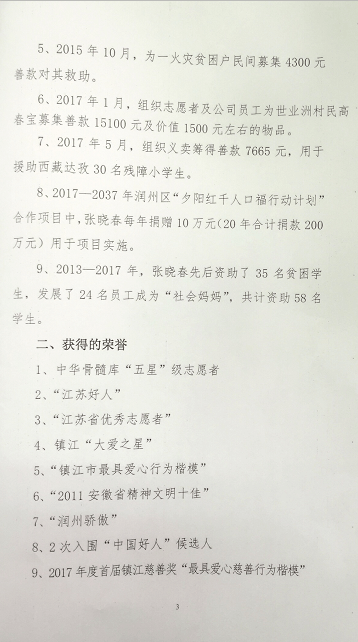 5、2015年10月，为一火灾贫困户民间募集4300元
善款对其救助。
6、2017年1月，组织志愿者及公司员工为世业洲村民高
春宝募集善款15100元及价值1500元左右的物品。
7、2017年5月，组织义卖筹得善款7665元，用于
援助西藏达孜30名残障小学生。
8、2017—2037年润州区“夕阳红千人口福行动计划”
合作项目中，张晓春每年捐赠10万元(20年合计捐款200
万元）用于项目实施。
9、2013—2017年，张晓春先后资助了35名贫困学
生，发展了24名员工成为“社会妈妈”，共计资助58名
学生。
二、获得的荣誉
1、中华骨髓库“五星”级志愿者
2、“江苏好人”
3、“江苏省优秀志愿者”
4、镇江“大爱之星”
5、“镇江市最具爱心行为楷模”
6、“2011安徽省精神文明十佳”
7、“润州骄傲”
8、2次入围“中国好人”候选人
9、2017年度首届镇江慈善奖“最具爱心慈善行为楷模”
3